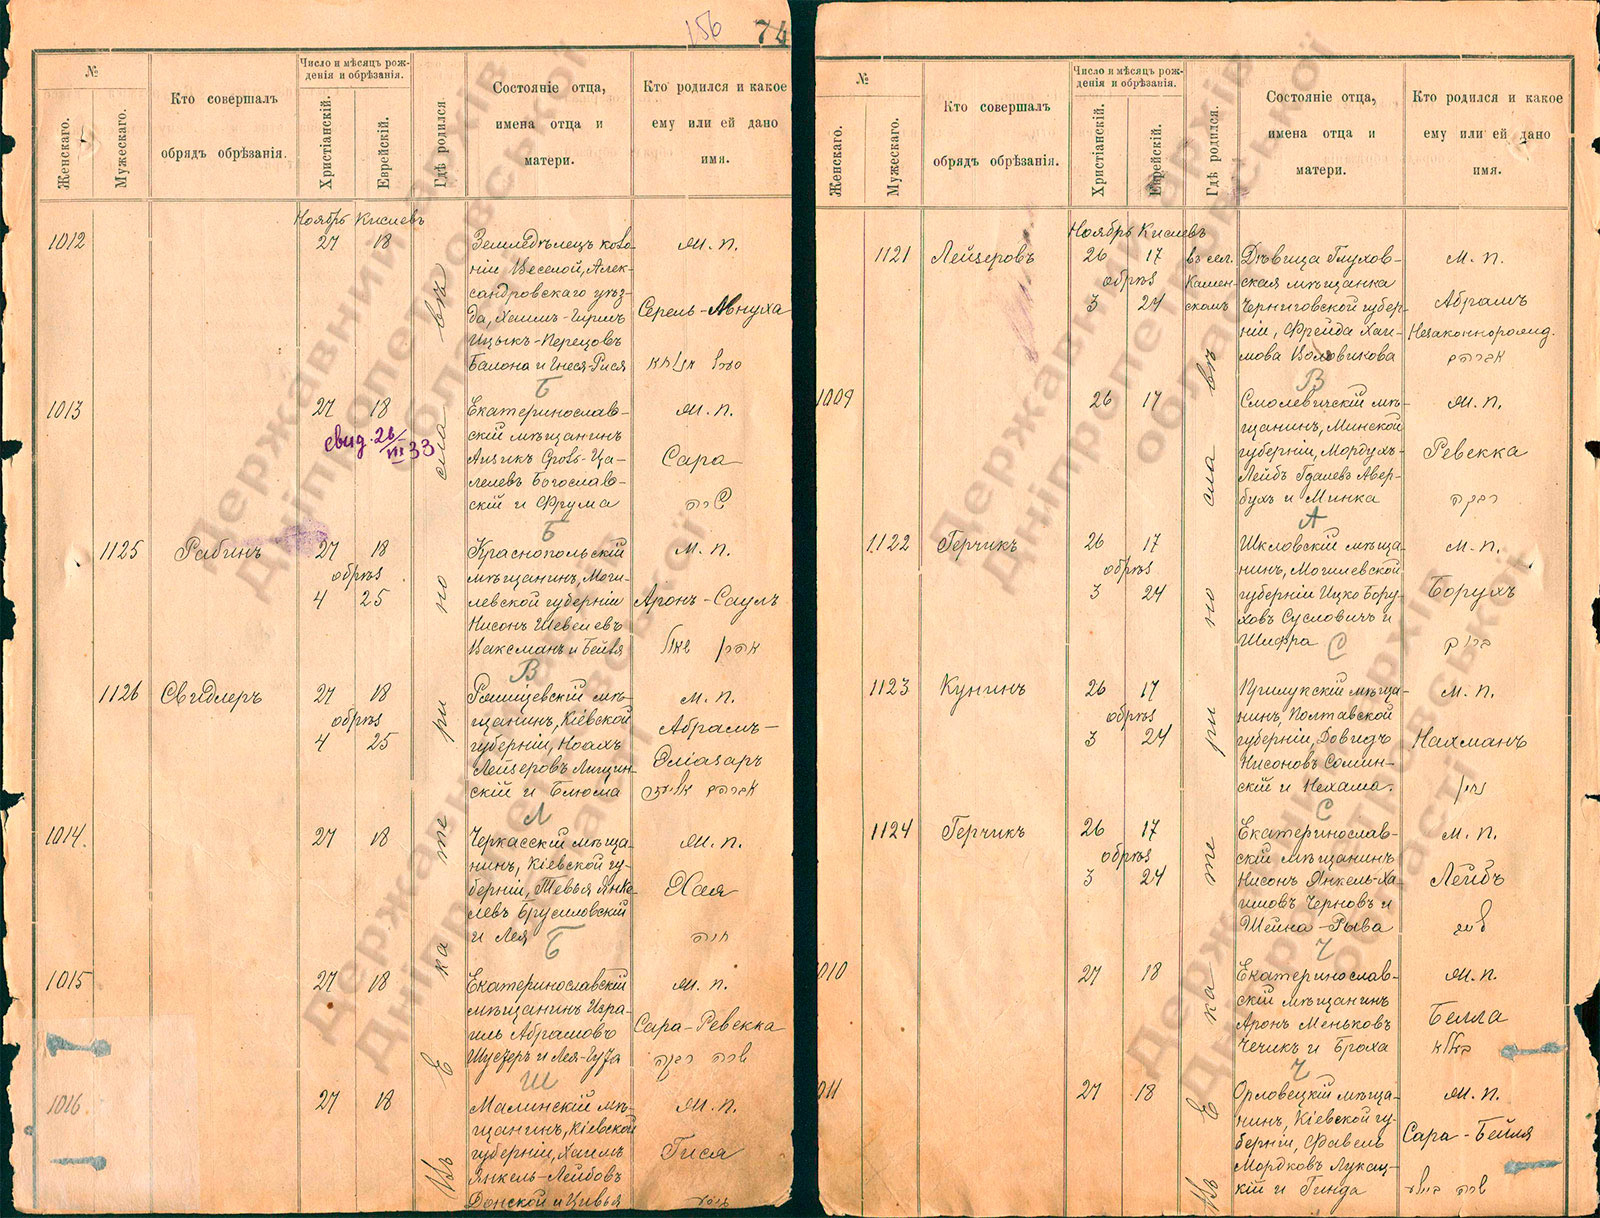 156 74
№
Женскаго.
Мужескаго.
Кто совершалъ
обрядъ обрѣзанія.
Число и мѣсяцъ рож-
денія и обрѣзанія.
Христіанскій.
Еврейскій.
Гдѣ родился.
Состояніе отца,
имена отца и
матери.
Кто родился и какое
ему или ей дано
имя.
Ноябрь Кислевъ
1012 27 18
Земледѣлецъ коло-
ніи Веселой, Алек-
сандровскаго уѣз-
да, Хаимъ-Гиршъ
Ицыкъ-Перецовъ
Балона и Гнеся-Рися
Ж. п.
Серель-Мнуха
Б
1013 27 18
свид. 26/VIII 33
Екатеринослав-
скій мѣщанинъ
Айзикъ
Богослав-
скій и Фрума
Ж. п.
Сара
שרה
Б
1125 Рабинъ 27 18
обрѣз
4 25
Краснопольскій
мѣщанинъ, Моги-
левской губерніи
Нисонъ Шевелевъ
Ваксманъ и Бейля
М. п.
Аронъ-Саулъ
אהרן שאול
В
1126 Свидлеръ 27 18
обрѣз
4 25
мѣ-
щанинъ, Кіевской
губерніи, Ноахъ
Лейзеровъ Лищин-
скій и Блюма
М. п.
Абрамъ-
Эліазаръ
Л
1014. 27 18
Черкасскій мѣща-
нинъ, Кіевской гу-
берніи, Тевья Янке-
левъ Брусиловскій
и Лея
Ж. п.
Хая
חיה
Б
1015 27 18
Екатеринославскій
мѣщанинъ Изра-
иль Абрамовъ
Шустеръ и Лея-Гута
Ж. п.
Сара-Ревекка
שרה רבקה
Ш
1016 27 18
Малинскій мѣ-
щанинъ, Кіевской
губерніи, Хаимъ
Янкель-Лейбовъ
Донской и Цивья
Ж. п.
Гися
Въ Екатеринославѣ
№
Женскаго.
Мужескаго.
Кто совершалъ
обрядъ обрѣзанія.
Число и мѣсяцъ рож-
денія и обрѣзанія.
Христіанскій.
Еврейскій.
Гдѣ родился.
Состояніе отца,
имена отца и
матери.
Кто родился и какое
ему или ей дано
имя.
Ноябрь Кислевъ
1121 Лейзеровъ 26 17
обрѣз
3 24
въ сел.
Камен-
скомъ
Дѣвица Глухов-
ская мѣщанка
Черниговской губер-
ніи, Фрейда Хаи-
мова Воловикова
М. п.
Абрамъ
Незаконнорожд.
אברהם
В
1009 26 17
Смолевичскій мѣ-
щанинъ, Минской
губерніи, Мордухъ-
Лейбъ Гдалев Авер-
бухъ и Минка
Ж. п.
Ревекка
רבקה
А
1122 Герчикъ 26 17
обрѣз
3 24
Шкловскій мѣща-
нинъ, Могилевской
губерніи Ицко Бору-
ховъ Сусловичъ и
Шифра
М. п.
Борухъ
ברוך
С
1123 Кунинъ 26 17
обрѣз
3 24
Прилукскій мѣща-
нинъ, Полтавской
губерніи, Довидъ
Нисоновъ Сомин-
скій и Нехама.
М. п.
Нахманъ
נחמן
С
1124 Герчикъ 26 17
обрѣз
3 24
Екатеринослав-
скій мѣщанинъ
Нисонъ Янкель-Ха-
имовъ Черновъ и
Шейна-Рыва
М. п.
Лейбъ
Ч
010 27 18
Екатеринослав-
скій мѣщанинъ
Аронъ Меньковъ
Чечикъ и Броха
Ж. п.
Белла
Ч
011 27 18
Орловецкій мѣща-
нинъ, Кіевской гу-
берніи, Файвель
Мордковъ Лукац-
кій и Гинда
Ж. п.
Сара-Бейля
שרה ביילע
Въ Екатеринославѣ
Державний архів
Дніпропетровської
області